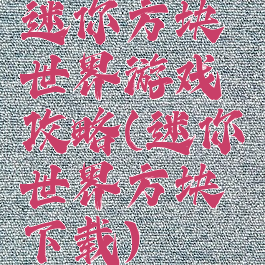 迷你方块
世界游戏
攻略(迷你
世界方块
下载)